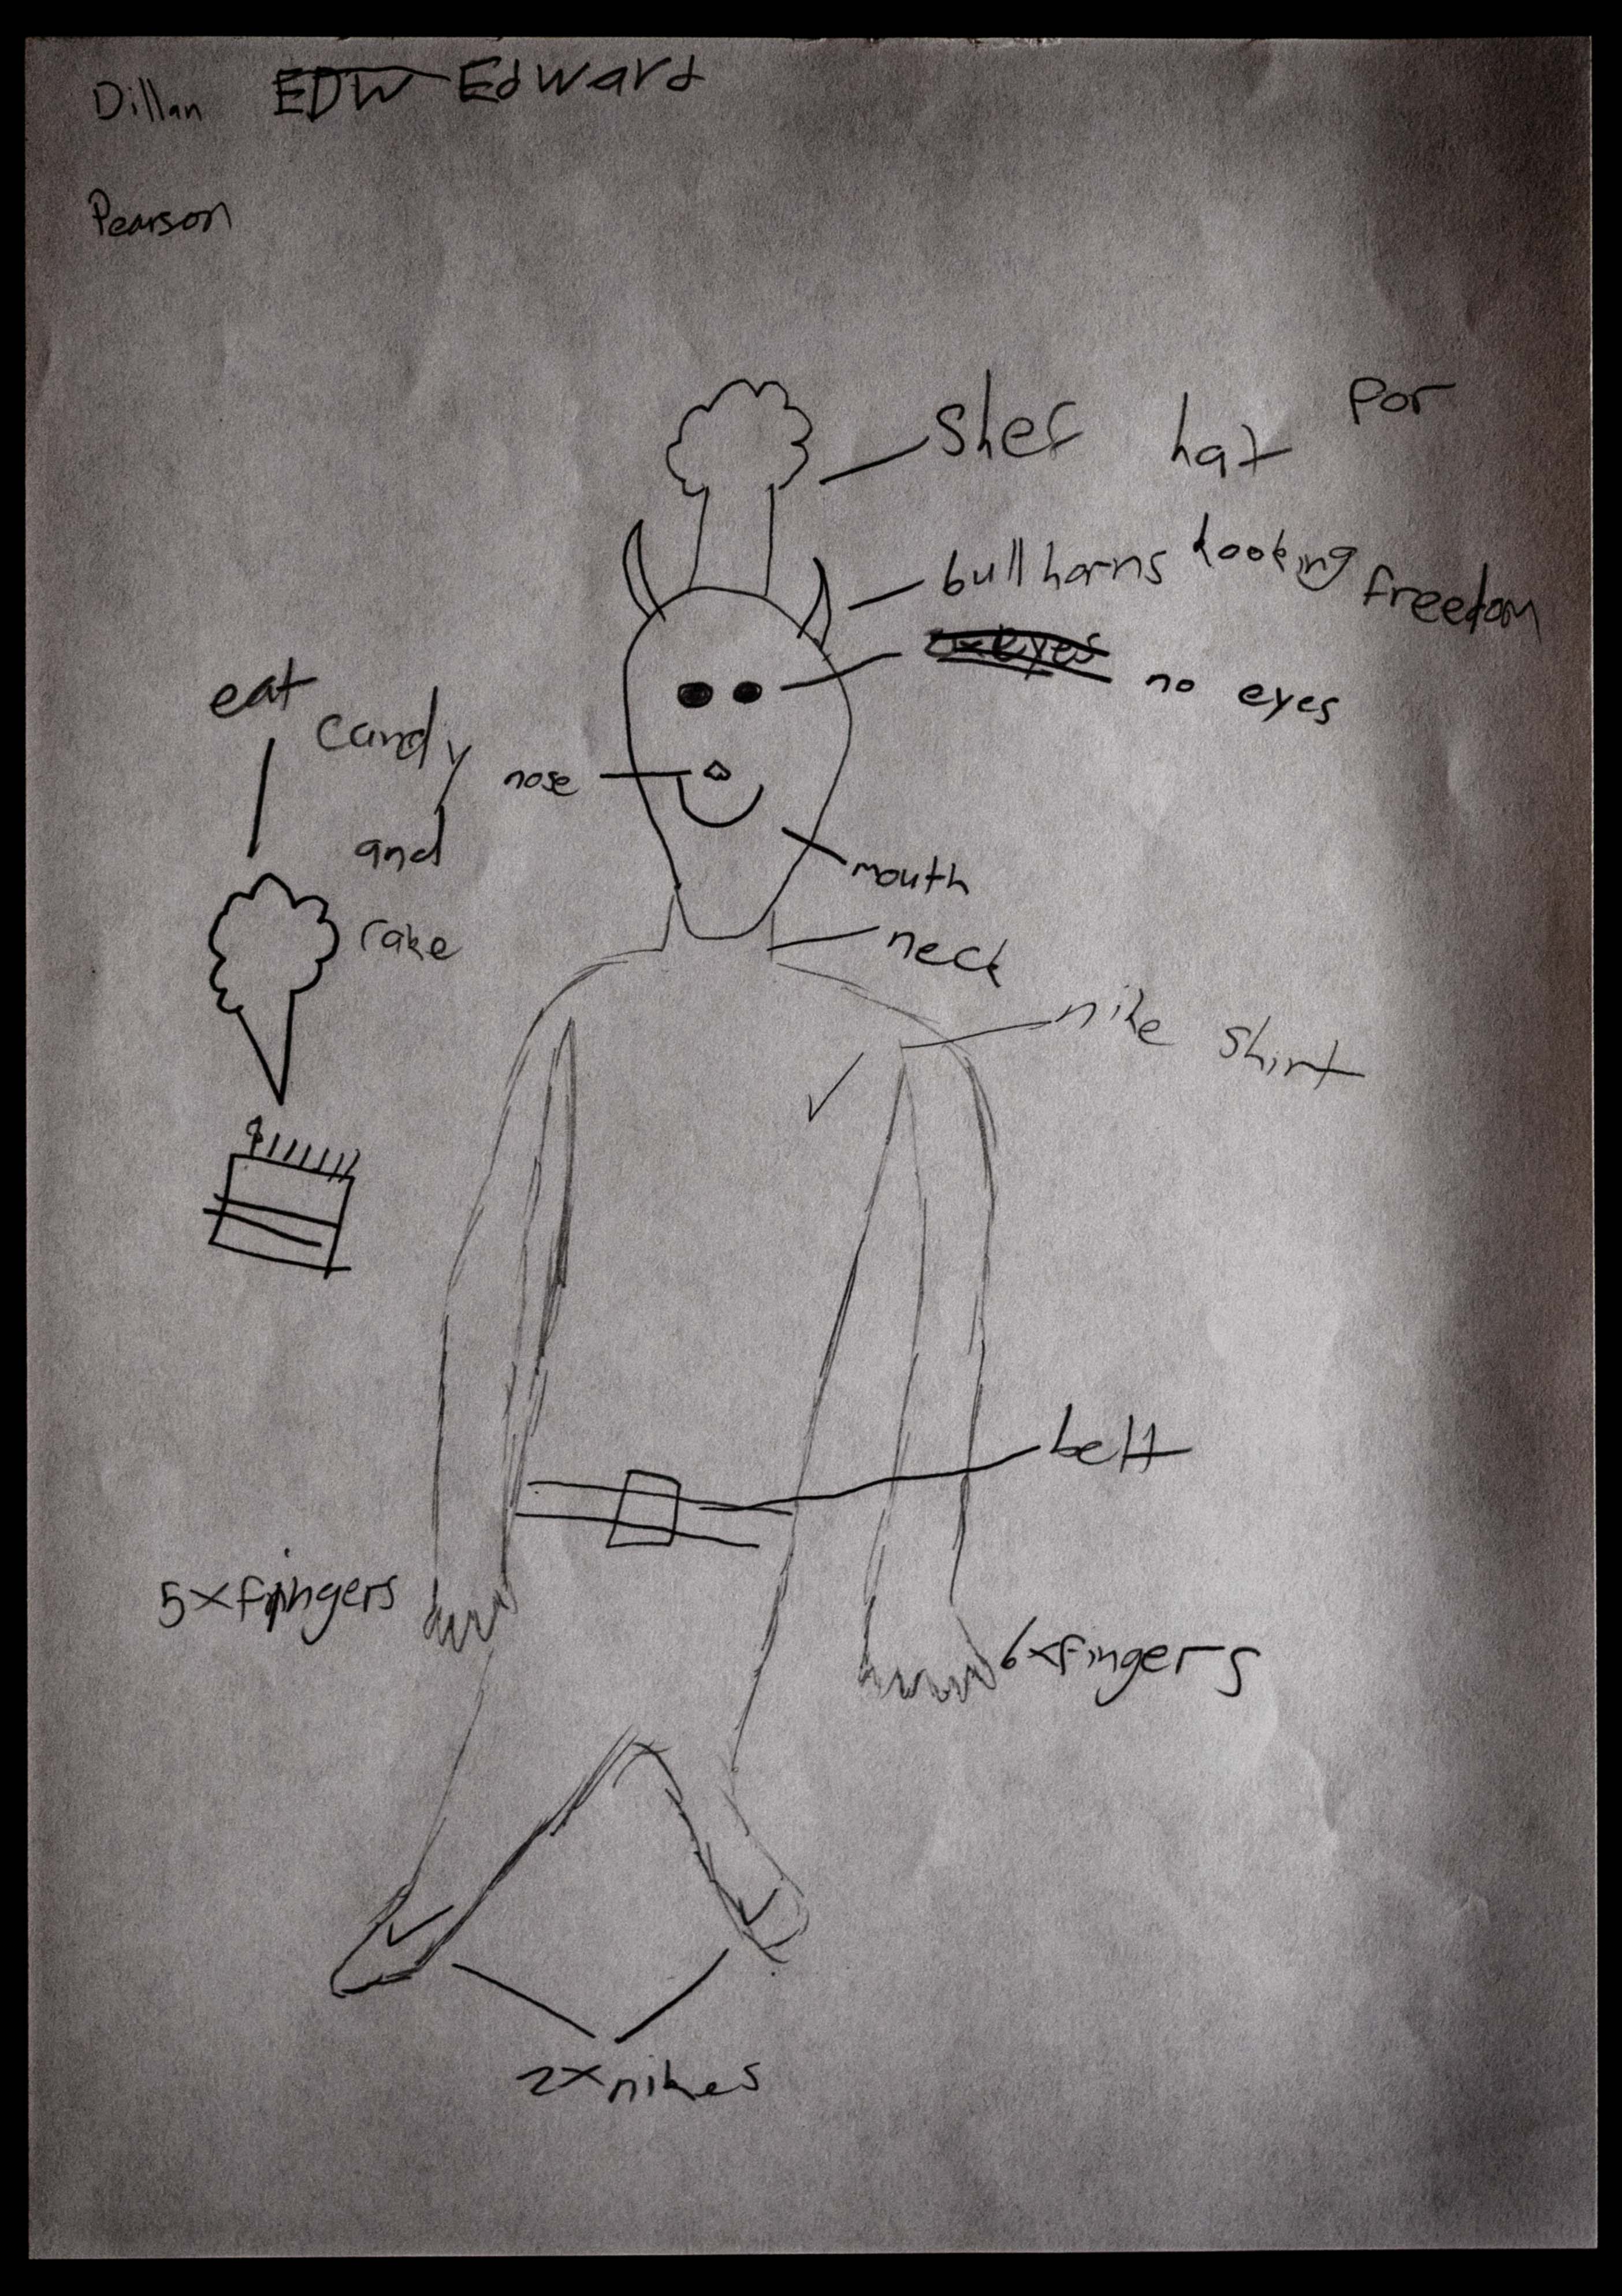 Dillan EDW Edward
Pearson
shef hat por
bull horns looking freedom
no eyes
eat candy
and
cake
nose
mouth
neck
nike shirt
belt
5xfingers
6xfingers
2xnikes